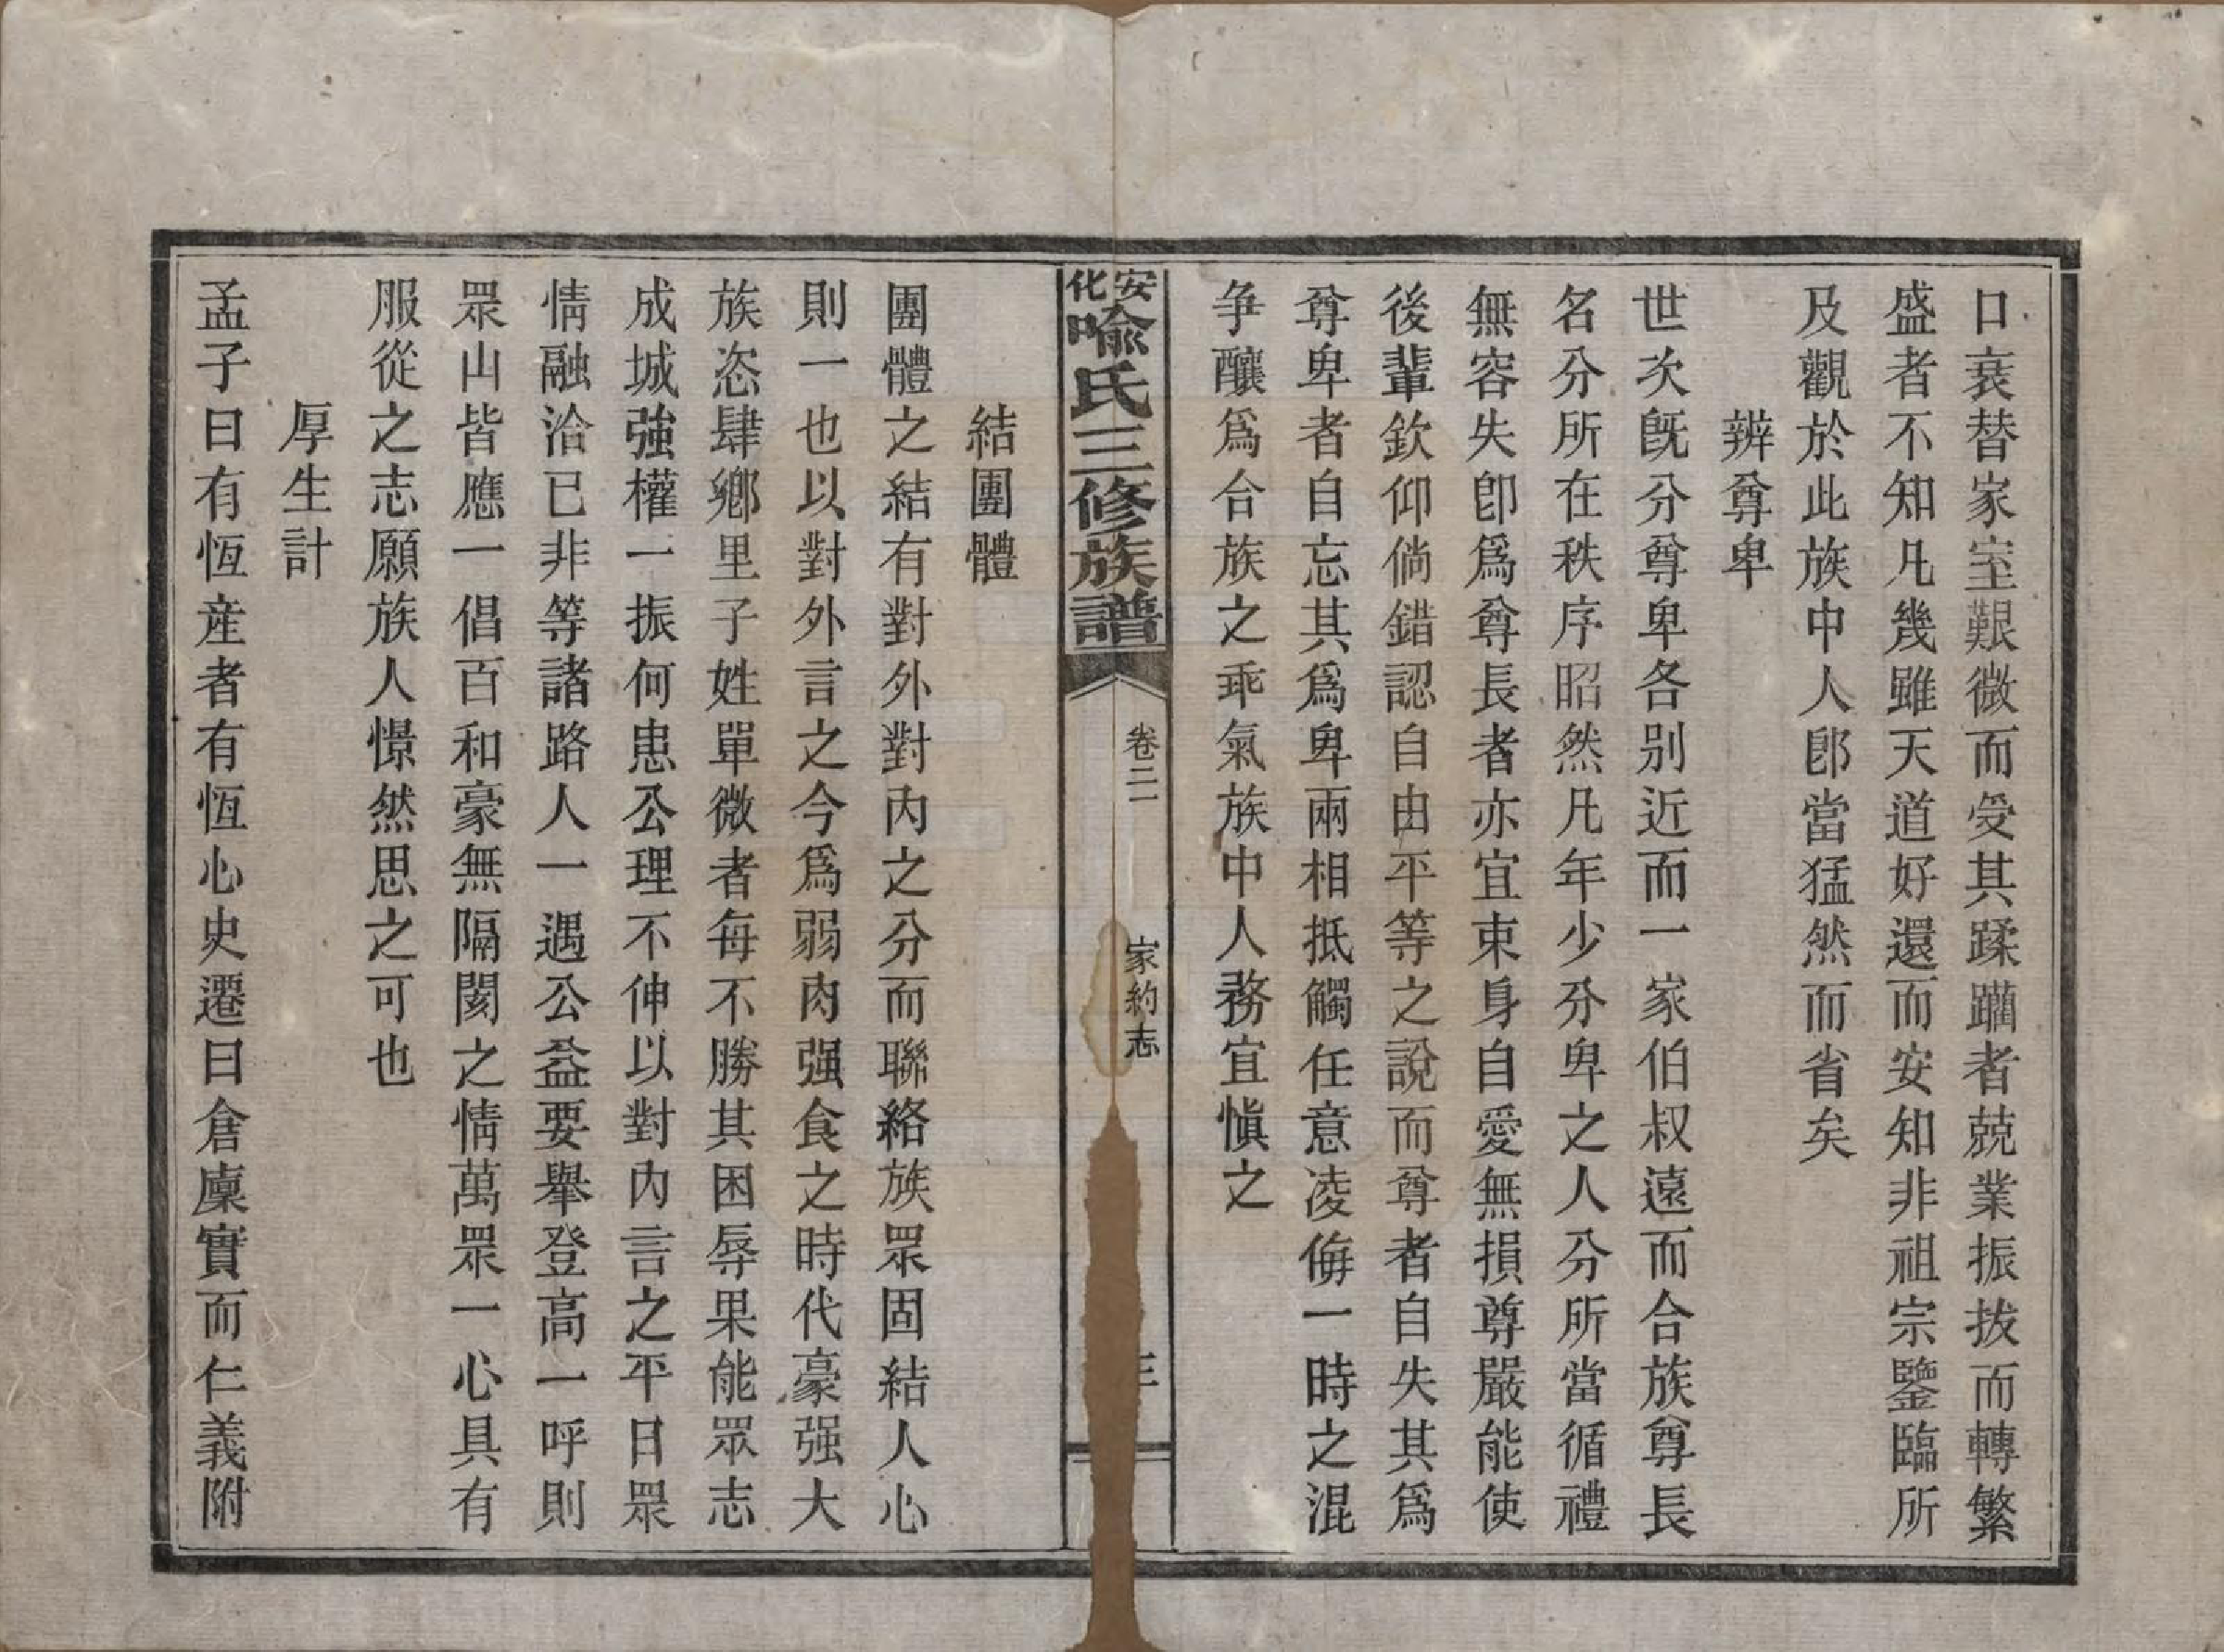 口衰替家室艱微而受其蹂躪者兢業振拔而轉繁
盛者不知凡幾雖天道好還而安知非祖宗鑒臨所
及觀於此族中人卽當猛然而省矣
辨尊卑
世次旣分尊卑各别近而一家伯叔遠而合族尊長
名分所在秩序昭然凡年少分卑之人分所當循禮
無容失卽爲尊長者亦宜束身自愛無損尊嚴能使
後輩欽仰倘錯認自由平等之說而尊者自失其爲
尊卑者自忘其爲卑兩相抵觸任意凌侮一時之混
争釀爲合族之乖氣族中人務宜愼之
安化喩氏三修族譜
卷二一
家約志
三
結團體
團體之結有對外對內之分而聯絡族眾固結人心
則一也以對外言之今爲弱肉强食之時代豪强大
族恣肆鄉里子姓單微者每不勝其困辱果能眾志
成城強權一振何患公理不伸以對內言之平日眾
情融洽已非等諸路人一遇公益要舉登高一呼則
眾山皆應一倡百和豪無隔閡之情萬眾一心具有
服從之志願族人憬然思之可也
厚生計
孟子曰有恆産者有恆心史遷曰倉廩實而仁義附